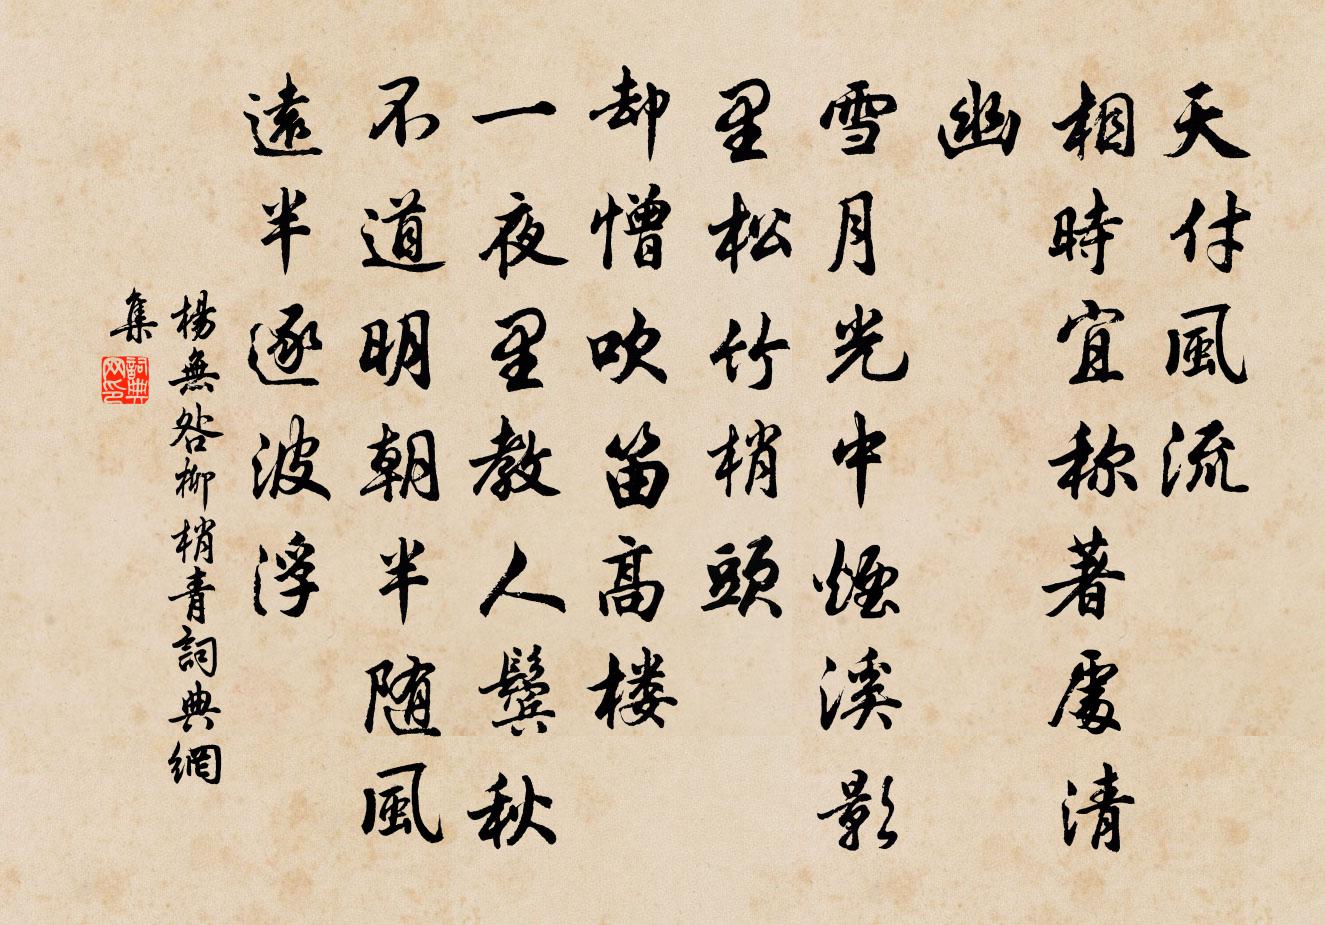 天付風流
相時宜称著處清
幽
雪月光中煙溪影
里松竹梢頭
却憎吹笛高楼
一夜里教人鬓秋
不道明朝半随風
遠半逐波浮
楊無咎柳梢青詞典網
集
詞典网印